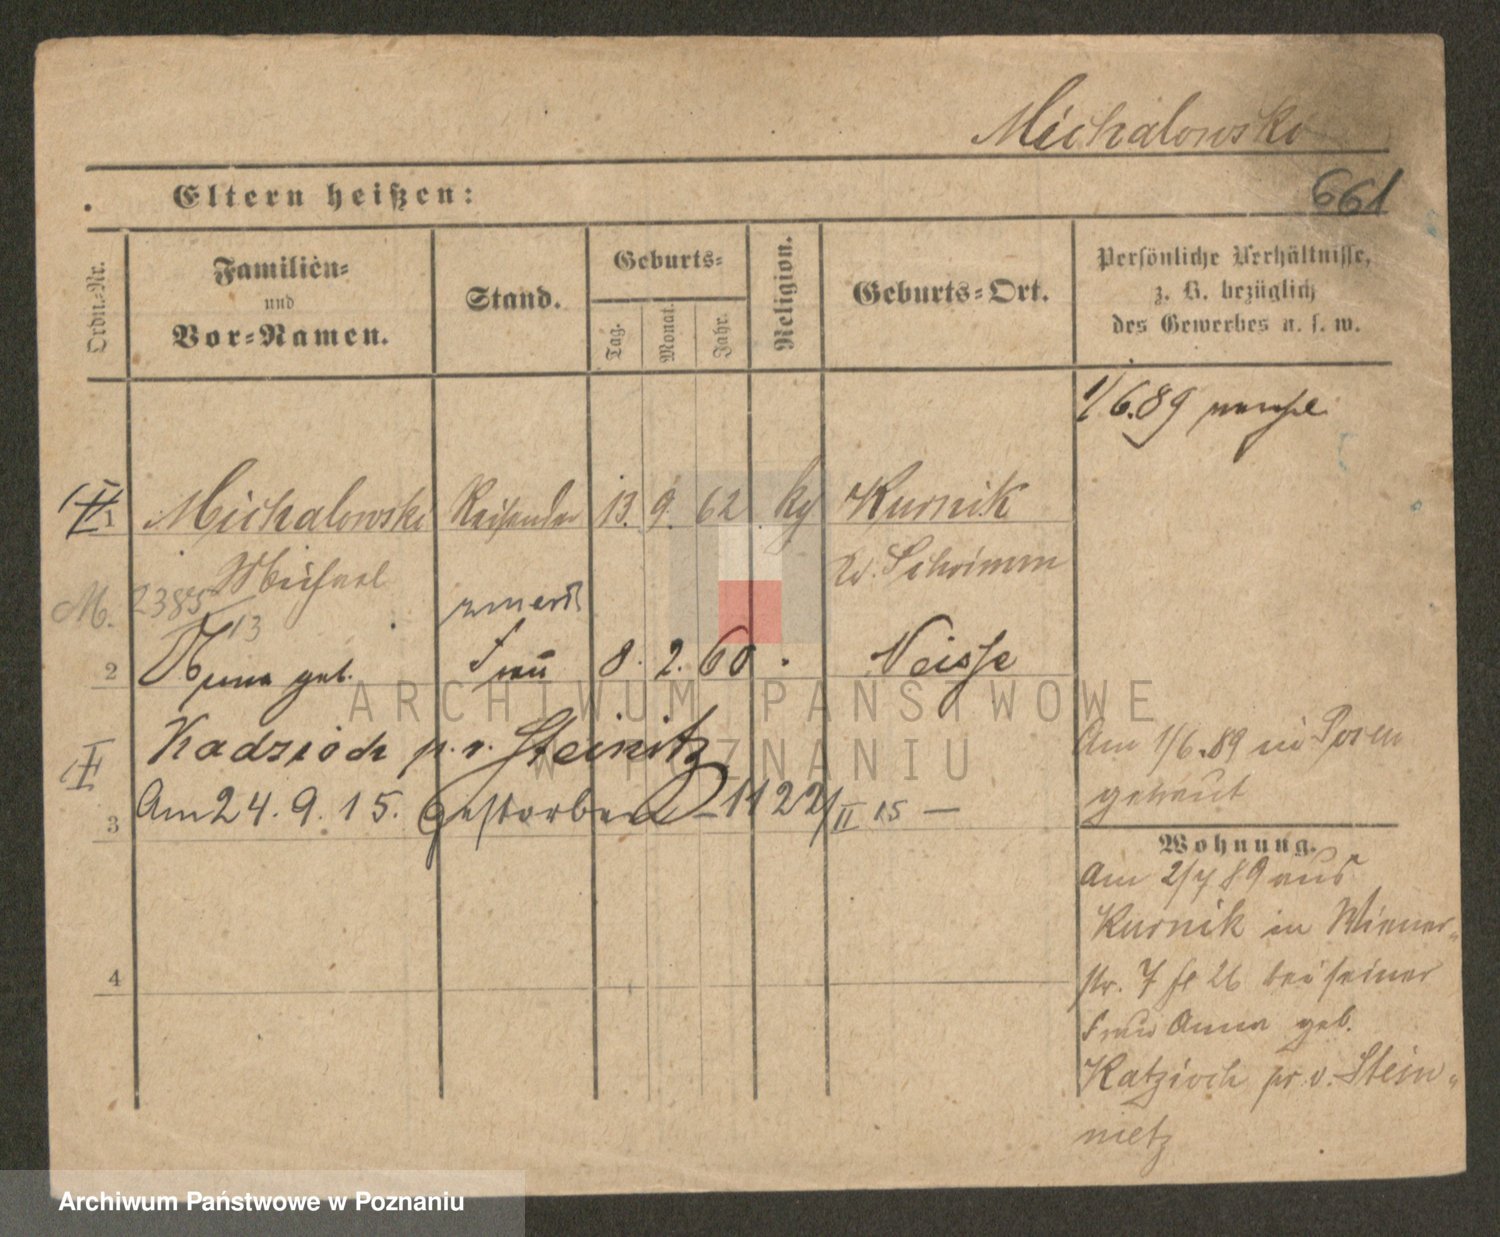 Michalowski
Eltern heißen:
661
Ordn.-Nr.
Familien-
und
Vor-Namen.
Stand.
Geburts-
Tag.
Monat.
Jahr.
Religion.
Geburts-Ort.
Persönliche Verhältnisse,
z. B. bezüglich
des Gewerbes u. s. w.
1/6.89
1 Michalowski Reisender 13. 9. 62 kg Kurnik
Michael
Kr. Schrimm
M. 2385
13
2 Anna geb. Frau 8. 2. 60 Neisse
Kadzioch p. v. Steinitz
Am 24. 9. 15. Gestorben – 1122/II 15 –
3
4
Am 1/6.89 in Posen
getraut
Wohnung.
Am 2/7 89 aus
Kurnik in Wiener-
str. 7 bei seiner
Frau Anna geb.
Katzioch pr. v. Stein-
nietz
ARCHIWUM PAŃSTWOWE
W POZNANIU
Archiwum Państwowe w Poznaniu